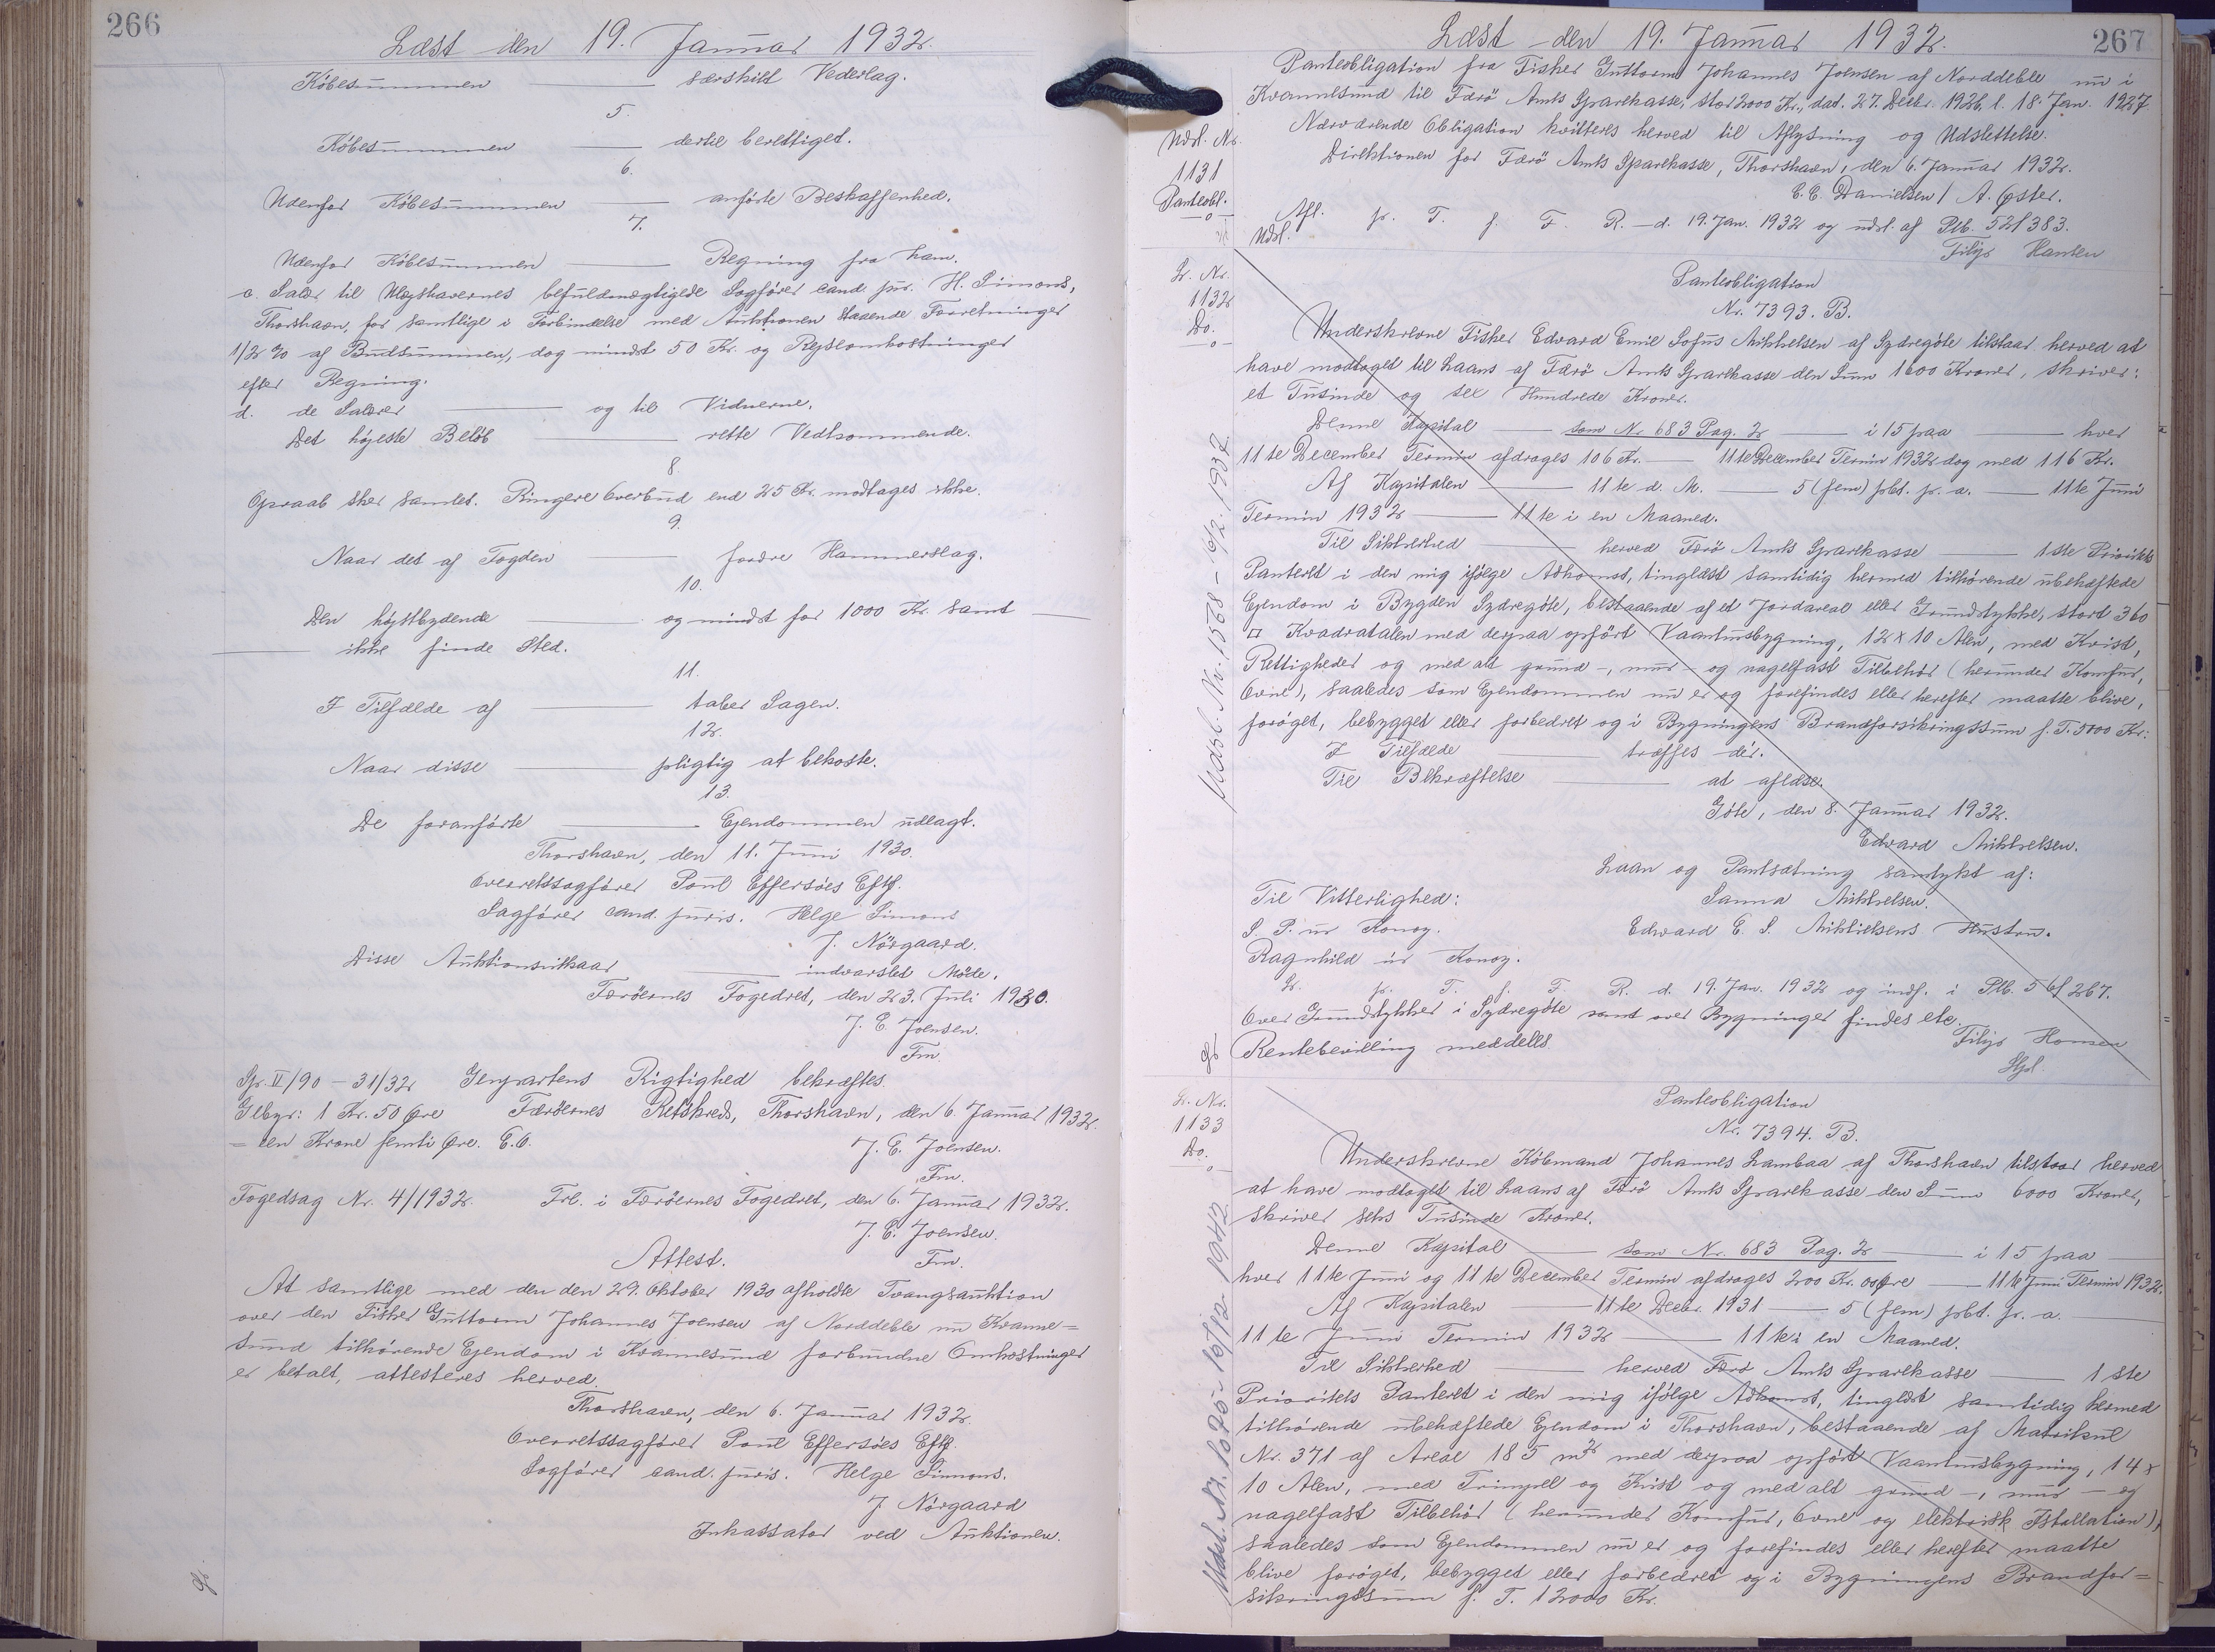 266
Læst den 19. Januar 1932.
Købesummen ——— særskilt Vederlag.
5.
Købesummen ——— dertil berettiget.
6.
Udenfor Købesummen ——— anførte Beskaffenhed.
7.
Udenfor Købesummen ——— Regning fra ham.
c. Salær til Uløyshavernes befuldmægtigede Sagfører cand. jur. H. Simons,
Thorshavn, for samtlige i Forbindelse med Auktionen staaende Forretninger
1/2 % af Budsummen, dog mindst 50 Kr. og Rejseomkostninger
efter Regning.
d. de Salærer ——— og til Vidnerne.
Det højeste Beløb ——— rette Vedkommende.
8.
Opraab sker samlet. Ringere Overbud end 25 Kr. modtages ikke.
9.
Naar det af Fogden ——— fordre Hammerslag.
10.
Den højstbydende ——— og mindst for 1000 Kr. samt ———
——— ikke finde Sted.
11.
I Tilfælde af ——— taber Sagen.
12.
Naar disse ——— pligtig at bekoste.
13.
De foranførte ——— Ejendommen udlagt.
Thorshavn, den 11. Juni 1930.
Overretssagfører Poul Effersøes Eftf.
Sagfører cand. juris. Helge Simons
J. Nørgaard.
Disse Auktionsvilkaar ——— indvarslet Møde.
Færøernes Fogedret, den 23. Juli 1930.
J. E. Joensen.
Fm.
Sp. II/90 - 31/32 Genpartens Rigtighed bekræftes.
Gebyr: 1 Kr. 50 Øre Færøernes Retskreds, Thorshavn, den 6. Januar 1932.
= een Krone femti Øre. E.O. J. E. Joensen.
Fm.
Fogedsag Nr. 4/1932. Frl. i Færøernes Fogedret, den 6. Januar 1932.
J. E. Joensen.
Attest. Fm.
At samtlige med den den 29. Oktober 1930 afholdte Tvangsauktion
over den Fisker Guttorm Johannes Joensen af Norddeble nu Kvanne=
sund tilhørende Ejendom i Kvannesund forbundne Omkostninger
er betalt, attesteres herved.
Thorshavn, den 6. Januar 1932.
Overretssagfører Poul Effersøes Eftf.
Sagfører cand. juris. Helge Simons.
J. Nørgaard
Inkassator ved Auktionen.
267
Læst den 19. Januar 1932.
Panteobligation fra Fisker Guttorm Johannes Joensen af Norddeble nu i
Kvannesund til Færø Amts Sparekasse, stor 2000 Kr., dat. 27. Decbr. 1926, l. 18. Jan. 1927.
Udsl. Nr.
1131
Panteobl.
Nærværende Obligation kvitteres herved til Aflysning og Udslettelse.
Direktionen for Færø Amts Sparekasse, Thorshavn, den 6. Januar 1932.
C. C. Danielsen / A. Øster.
Afl. pr. T. f. F. R. d. 19. Jan. 1932 og udsl. af Plb. 52/383.
Udsl.
Filip Hansen
L. Nr.
1132
Do.
Panteobligation
Nr. 7393. B.
Underskrevne Fisker Edvard Emil Sofus Mikkelsen af Sydregøte tilstaar herved at
have modtaget til Laans af Færø Amts Sparekasse den Sum 1600 Kroner, skriver:
et Tusinde og sex Hundrede Kroner.
Denne Kapital ——— som Nr. 683 Pag. 2 ——— i 15 paa ——— hver
11te December Termin afdrages 106 Kr. ——— 11te December Termin 1932 dog med 116 Kr.
Af Kapitalen ——— 11te d. M. ——— 5 (fem) pbt. p. a. ——— 11te Juni
Termin 1932 ——— 11te i en Maaned.
Til Sikkerhed ——— herved Færø Amts Sparekasse ——— 1ste Prioritets
Panteret i den mig ifølge Adkomst, tinglæst samtidig hermed tilhørende ubehæftede
Ejendom i Bygden Sydregøte, bestaaende af et Jordareal eller Grundstykke, stort 360
□ Kvadratalen med derpaa opført Vaaningsbygning, 12 x 10 Alen, med Kvist,
Rettigheder og med alt grund-, mur- og nagelfast Tilbehør (herunder Komfur,
Ovne), saaledes som Ejendommen nu er og forefindes eller herefter maatte blive,
forøget, bebygget eller forbedret og i Bygningens Brandforsikringssum p. T. 5000 Kr:
I Tilfælde ——— træffes der.
Til Bekræftelse ——— at aflæse.
Gøte, den 8. Januar 1932.
Edvard Mikkelsen.
Laan og Pantsætning samtykt af:
Til Vitterlighed: Sanna Mikkelsen.
S. P. ur Konoy. Edward E. S. Mikkelsens Hustru.
Ragnhild úr Konoy.
L. pr. T. f. F. R. d. 19. Jan. 1932 og indf. i Plb. 56/267.
Over Grundstykker i Sydregøte samt over Bygninger findes etc.
Rentebevilling meddelt. Filip Hansen
Hpl.
Udsl. Nr. 1568 - 16/2 1937
L. Nr.
1133
Do.
Panteobligation
Nr. 7394. B.
Underskrevne Købmand Johannes Lambaa af Thorshavn tilstaar herved
at have modtaget til Laans af Færø Amts Sparekasse den Sum 6000 Kroner,
skriver seks Tusinde Kroner.
Denne Kapital ——— som Nr. 683 Pag. 2 ——— i 15 paa ———
hver 11te Juni og 11te December Termin afdrages 200 Kr. 00 Øre ——— 11te Juni Termin 1932.
Af Kapitalen ——— 11te Decbr. 1931 ——— 5 (fem) pbt. p. a. ———
11te Juni Termin 1932 ——— 11te i en Maaned.
Til Sikkerhed ——— herved Færø Amts Sparekasse ——— 1ste
Prioritets Panteret i den mig ifølge Adkomst, tinglæst samtidig hermed
tilhørende ubehæftede Ejendom i Thorshavn, bestaaende af Matrikul
Nr. 371 af Areal 185 m² med derpaa opført Vaaningsbygning, 14 x
10 Alen, med Trimpel og Kvist og med alt grund-, mur- og
nagelfast Tilbehør (herunder Komfur, Ovne og elektrisk Istallation),
saaledes som Ejendommen nu er og forefindes eller herefter maatte
blive forøget, bebygget eller forbedret og i Bygningens Brandfor=
sikringssum p. T. 12000 Kr.
Udsl. Nr. 1070 - 16/12 1942